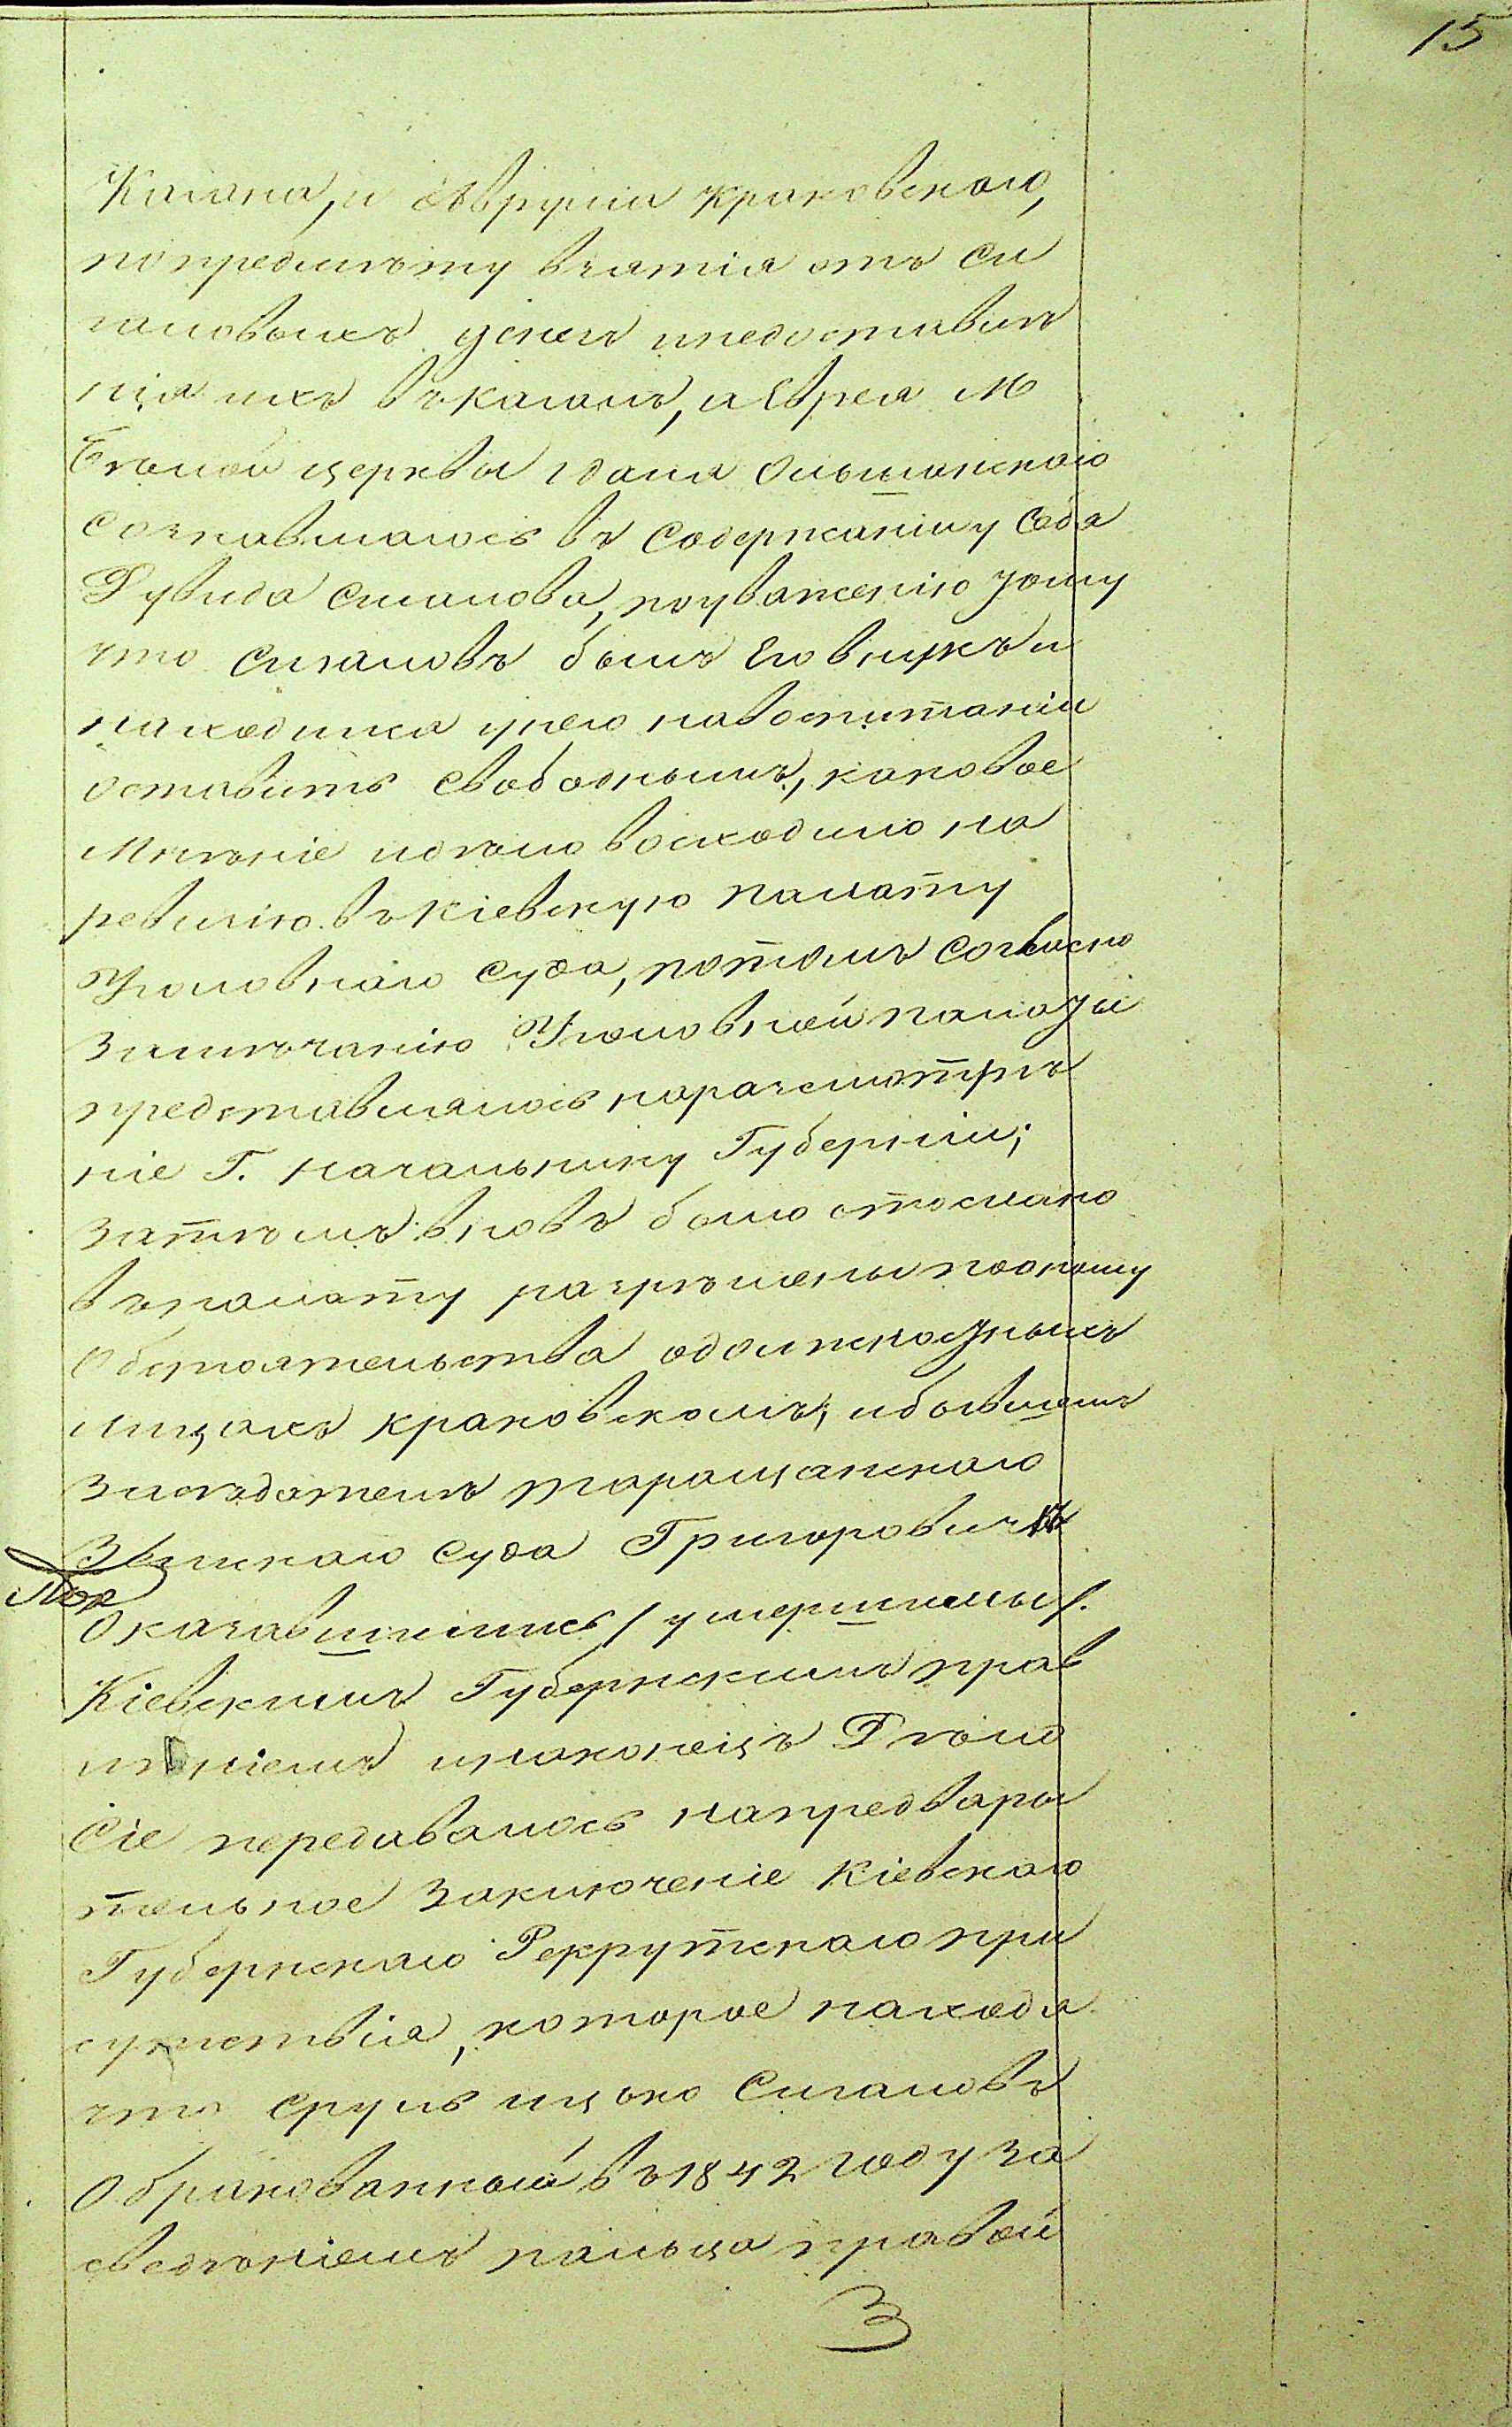 15
Кагана, и Аврума Краковскаго,
по предмету взятія отъ Си
галовыхъ денегъ и недоставле
нія ихъ въ кагалъ, и Еврея М
Бѣлой церкви Іоана Ольшанскаго
сознавшагося въ содержаніи у себя
Рувида Сигалова, по уваженію тому
что Сигаловъ былъ его внукъ и
находился у него на воспитаніи
оставить свободнымъ, каковое
мнѣніе и дѣло восходило на
ревизію въ Кіевскую палату
Уголовнаго суда, потомъ согласно
замѣчанію Уголовной палаты
представлялось на разсмотрѣ
ніе Г. Начальнику Губерніи;
затѣмъ вновь было отослано
въ палату разрѣшены по оному
обстоятельства о должностныхъ
лицахъ Краковскомъ, и бывшемъ
засѣдателѣ Таращанскаго
Земскаго суда Григоровичѣ
оказавшимися /умершимы/.
Кіевскимъ Губернскимъ прав
леніемъ и наконецъ Дѣло
сіе передавалось на предвари
тельное заключеніе Кіевскаго
Губернскаго Рекрутскаго при
сутствія, которое находя
что Сруль Ицько Сигаловъ
обракованный въ 1842 году за
сведѣніемъ пальца правой
3